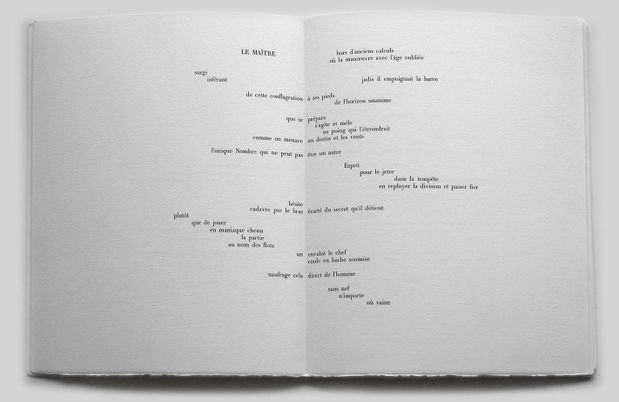 LE MAÎTRE
hors d'anciens calculs
où la manœuvre avec l'âge oubliée
surgi
inférant
jadis il empoignait la barre
de cette conflagration à ses pieds
de l'horizon unanime
que se prépare
s'agite et mêle
au poing qui l'étreindrait
comme on menace un destin et les vents
l'unique Nombre qui ne peut pas être un autre
Esprit
pour le jeter
dans la tempête
en reployer la division et passer fier
hésite
cadavre par le bras écarté du secret qu'il détient
plutôt
que de jouer
en maniaque chenu
la partie
au nom des flots
un envahit le chef
coule en barbe soumise
naufrage cela direct de l'homme
sans nef
n'importe
où vaine